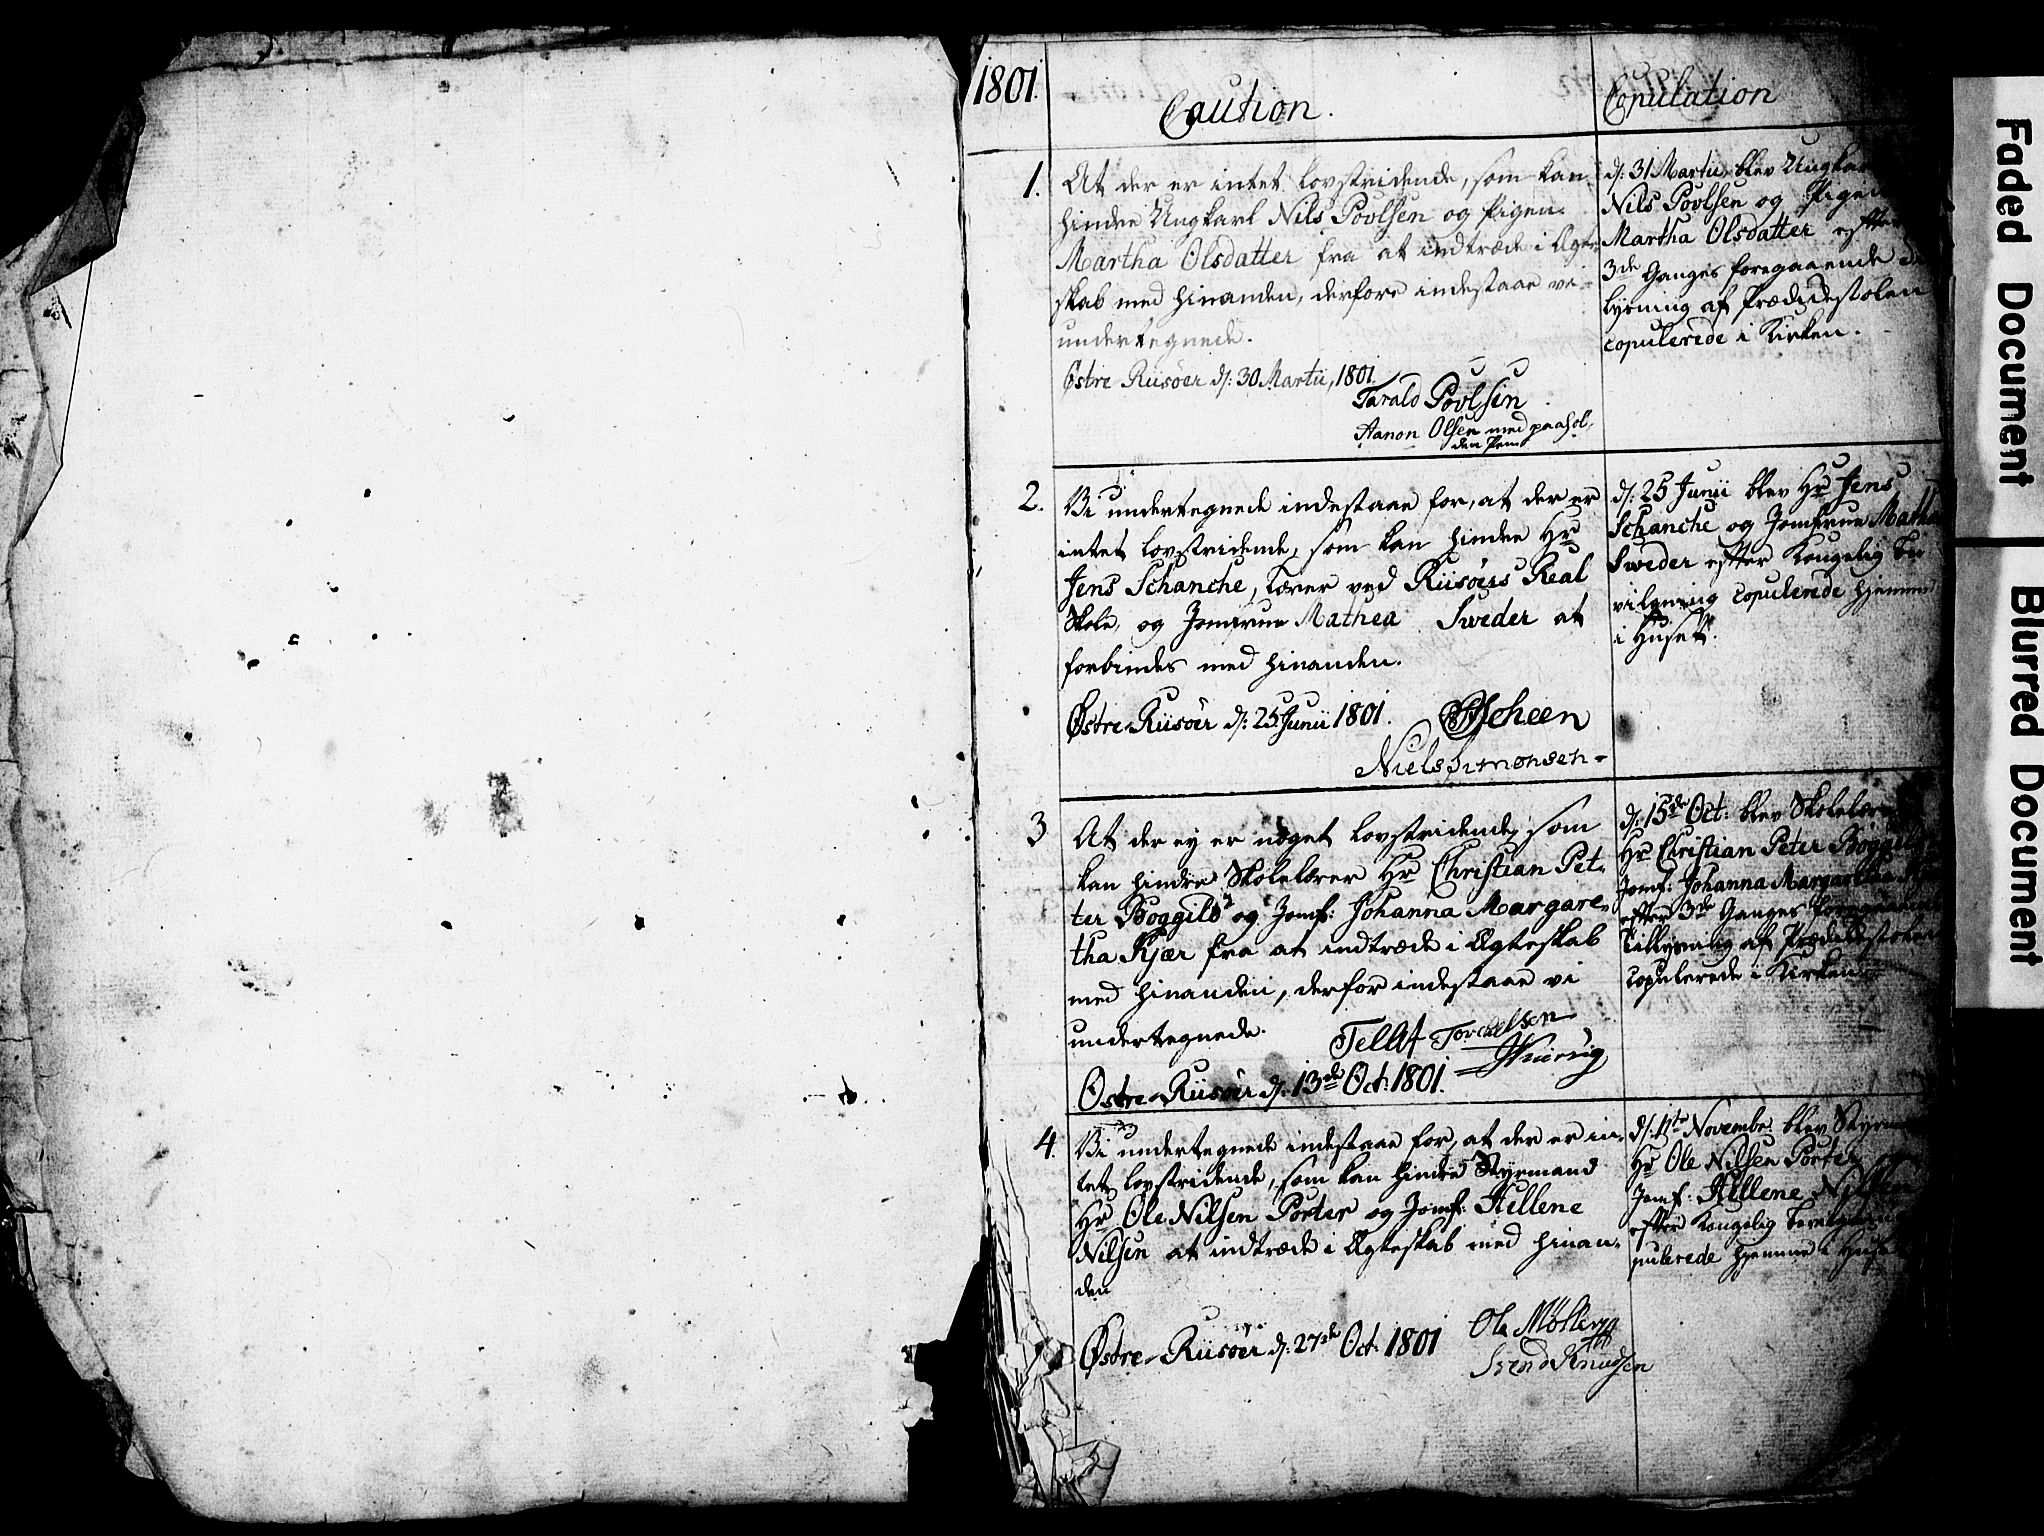 1801.
Caution.
Copulation
1.
At der er intet lovstridende, som kan
hindre Ungkarl Nils Povlsen og Pigen
Martha Olsdatter fra at indtræde i Ægte-
skab med hinanden, derfore indestaae vi
undertegnede.
Østre Riisøer d: 30 Martii, 1801.
Tarald Povlsen
Aanon Olsen med paahol-
den Pen
d: 31 Martii blev Ungkar
Nils Povlsen og Pigen
Martha Olsdatter efter
3de Ganges foregaaende
lysning af Prædikestolen
copulerede i Kirken.
2.
Vi undertegnede indestaae for, at der er
intet lovstridende, som kan hindre Hr
Jens Schanche, Lærer ved Riisøers Real
Skole, og Jomfrue Mathea Sweder at
forbindes med hinanden.
Østre-Riisöer d: 25 Junii 1801.
Scheen
Niels Simonsen
d: 25 Junii blev Hr Jens
Schanche og Jomfrue Mathe
Sweder efter Kongelig Be
vilgning copulerede hjemme
i Huset.
3
At der ey er noget lovstridende, som
kan hindre Skolelærer Hr Christian Pet-
ter Bøggild og Jomf: Johanna Margare-
tha Kjær fra at indtræde i Ægteskab
med hinanden, derfor indestaae vi
undertegnede.
Tellef Torchelsen
Østre-Riisöer d: 13de Oct: 1801.
d: 15de Oct: blev Skolelærer
Hr Christian Peter Bøggild
Jomf: Johanna Margaretha
efter 3de Ganges foregaaende
Tillysning af Prædikestolen
copulerede i Kirken
4.
Vi undertegnede indestaae for, at der er in-
tet lovstridende, som kan hindre Styrmand
Hr Ole Nilsen Porter og Jomf: Hellene
Nilsen at indtræde i Ægteskab med hinan-
den
Østre-Riisöer d: 27de Oct. 1801
Ole
Svend Knudsen
d: 11te Novembr. blev Styrm
Hr Ole Nilsen Porter
Jomf: Hellene Nilsen
efter Kongelig Bevilgning
pulerede hjemme i Huse
Faded Document
Blurred Document